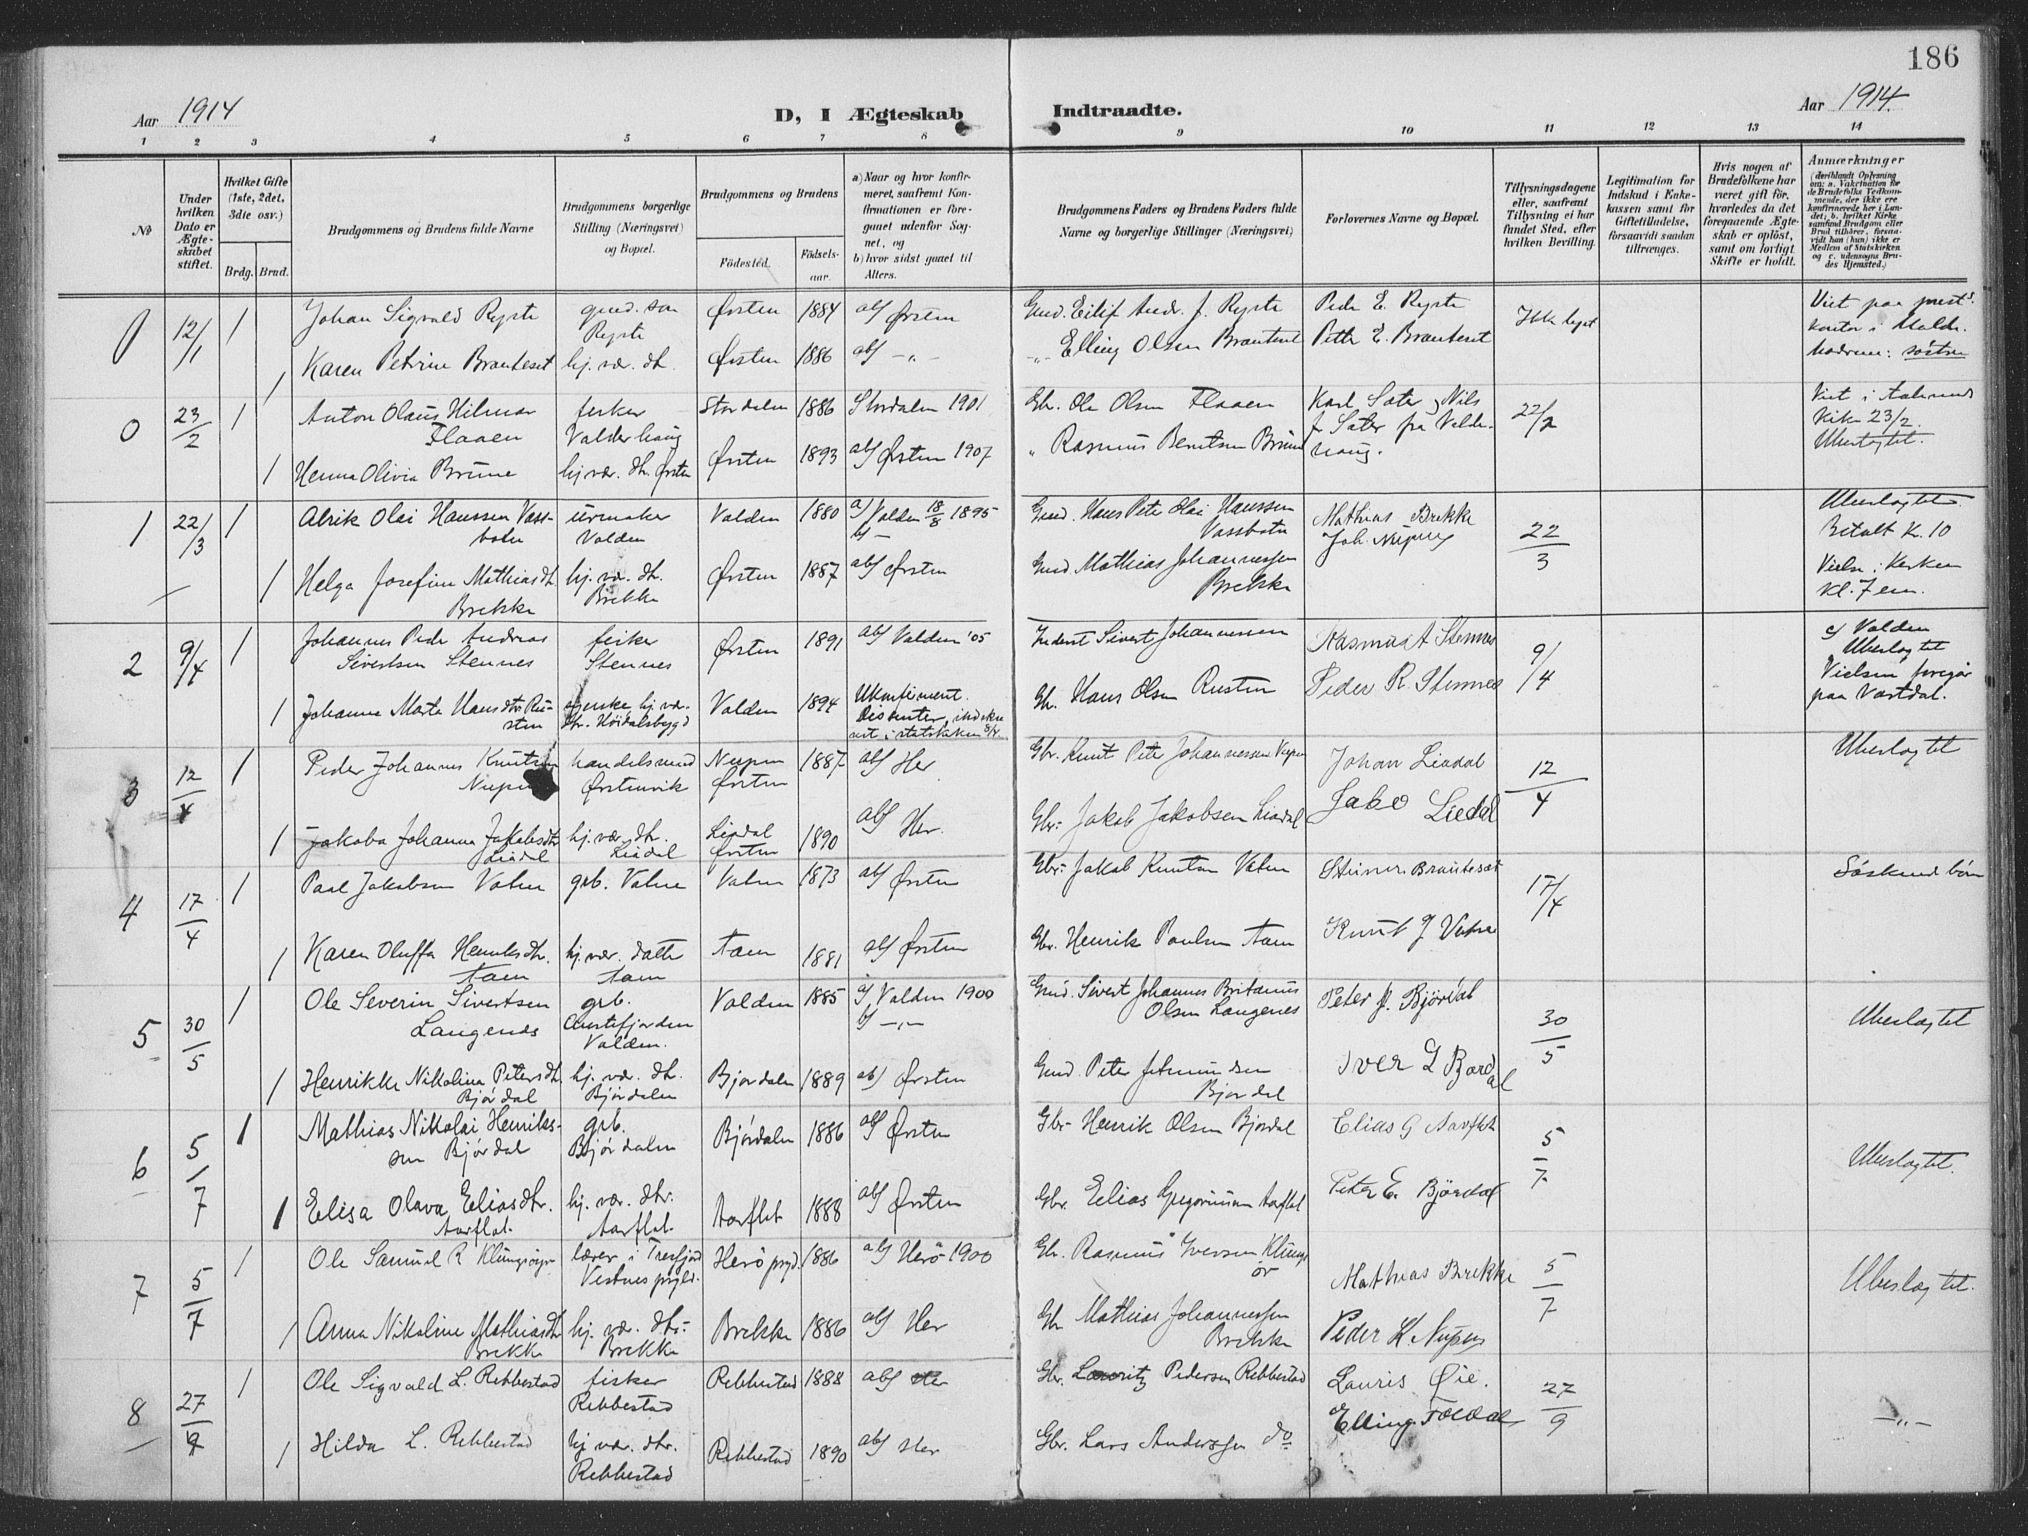 186
Aar 1914
D, I Ægteskab
Indtraadte.
Aar 1914
1 2 3 4 5 6 7 8 9 10 11 12 13 14
№
Under hvilken Dato er Ægteskabet stiftet.
Hvilket Gifte (1ste, 2det, 3die osv.)
Brdg. Brud.
Brudgommens og Brudens fulde Navne
Brudgommens borgerlige Stilling (Næringsvei) og Bopæl.
Brudgommens og Brudens
Födested.
Födselsaar.
a) Naar og hvor konfirmeret, saafremt Konfirmationen er foregaaet udenfor Sognet, og
b) hvor sidst gaaet til Alters.
Brudgommens Faders og Brudens Faders fulde Navne og borgerlige Stillinger (Næringsvei)
Forlovernes Navne og Bopæl.
Tillysningsdagene eller, saafremt Tillysning ei har fundet Sted, efter hvilken Bevilling.
Legitimation for Indskud i Enkekassen samt for Giftetilladelse, forsaavidt saadan tiltrænges.
Hvis nogen af Brudefolkene har været gift för, hvorledes da det foregaaende Ægteskab er oplöst, samt om lovligt Skifte er holdt.
Anmærkninger
0 12/1 1 Johan Sigvald Ryste gmd. søn Ryste Ørsten 1884 ab) Ørsten Gmd. Eilif Andr. J. Ryste Peder E. Ryste
1 Karen Petrine Brauteset hj. vær. dt. Ørsten 1886 ab) -„- Elling Olsen Brauteset Petter E. Brauteset
0 23/2 1 Anton Olaus Hilmar Flaaen fisker Valderhaug Stordalen 1886 Stordalen 1901 Gbr. Ole Olsen Flaaen Karl Sæter, Nils 22/2
1 Henna Olivia Brune hj. vær. dt. Ørsten Ørsten 1893 ab) Ørsten 1907 „ Rasmus Berntsen Brune
Ubeslegtet.
1 22/3 1 Alrik Olai Hanssen Vassbotn urmaker Volden Volden 1880 a) Volden 18/8 1895 b) - Gmd. Hans Peter Olai Hanssen Vassbotn Mathias Brekke 22/3 Ubeslægtet Betalt K. 10
1 Helga Josefine Mathiasdt. Brekke hj. vær. dt. Brekke Ørsten 1887 ab) Ørsten Gmd Mathias Johannessen Brekke Vielse i Kirken kl. 7 em.
2 9/4 1 Johannes Peder Andreas Sivertsen Stennes fisker Stennes Ørsten 1891 ab) Volden '05 Inderst Sivert Johannessen Rasmus A Stennes 9/4 c/ Volden Ubeslægtet
1 Johanne Marte Hansdtr Rusten Høidalsbygd Volden 1894 Ukonfirmert. Dissenter, Gbr. Hans Olsen Rusten Peder R. Stennes Vielsen foregår paa Vartdal.
3 12/4 1 Peder Johannes Knutsen Nupen handelsmand Ørstenvik Nupen Ørsten 1887 ab) Her Gbr. Knut Peter Johannessen Nupen Johan Liadal 12/4 Ubeslægtet
1 Jakoba Johanna Jakobsdtr Liadal hj. vær. dtr. Liadal Liadal Ørsten 1890 ab) Her. Gbr. Jakob Jakobsen Liadal Jakob Liedal
4 17/4 1 Paal Jakobsen Vatne grb. Vatne Vatne 1873 ab) Ørsten Gbr. Jakob Knutsen Vatne Steiner Brauteset 17/4 Søskendbörn
1 Karen Oluffa Henriksdtr. Aam hj. vær. datter Aam Aam 1881 ab) Ørsten Gbr. Henrik Paulsen Aam Knut J Vatne
5 30/5 1 Ole Severin Sivertsen Langenes grb. Austefjorden Volden. Volden 1885 a) Volden 1900 b) -„- Gmd. Sivert Johannes Britanus Olsen Langenes Peter J. Bjørdal 30/5 Ubeslægtet
1 Henrikke Nikolina Petersdtr. Bjørdal hj. vær. dt. Bjørdalen Bjørdalen 1889 ab) Ørsten Gmd. Peter Bjørdal Iver L Bjørdal
6 5/7 1 Mathias Nikolai Henrikssen Bjørdal grb. Bjørdalen Bjørdalen 1886 ab) Ørsten Gbr. Henrik Olsen Bjørdal Elias G Aarflot 5/7 Ubeslægtet.
1 Elisa Olava Eliasdtr. Aarflot. hj. vær. dtr. Aarflot. Aarflot 1888 ab) Ørsten Gbr. Elias Gregoriusen Aarflot Peter E. Bjørdal
7 5/7 1 Ole Samuel R Klungsøyr lærer i Tresfjord Vestnes prgld. Herø prgd. 1886 ab) Herø 1900 Gbr. Rasmus Iversen Klungsør Mathias Brekke 5/7 Ubeslægtet.
1 Anna Nikoline Mathiasdtr Brekke hj. vær. dtr. Brekke Brekke 1886 ab) Her Gbr Mathias Johannessen Brekke Peder K. Nupen
8 27/9 1 Ole Sigvald L. Rebbestad fisker Rebbestad Rebbestad 1888 ab) Her Gbr. Lauritz Pedersen Rebbestad Lauris Øie. 27/9 -„-
1 Hilda L. Rebbestad hj. vær. dtr. Rebbestad Rebbestad 1890 ab) Her Gbr. Lars Anderssen do Elling Foldal